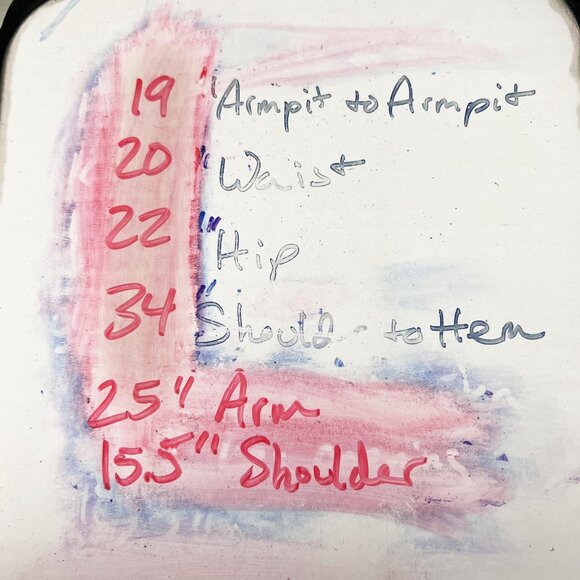 19" Armpit to Armpit
20" Waist
22" Hip
34" Should - to Hem
25" Arm
15.5" Shoulder